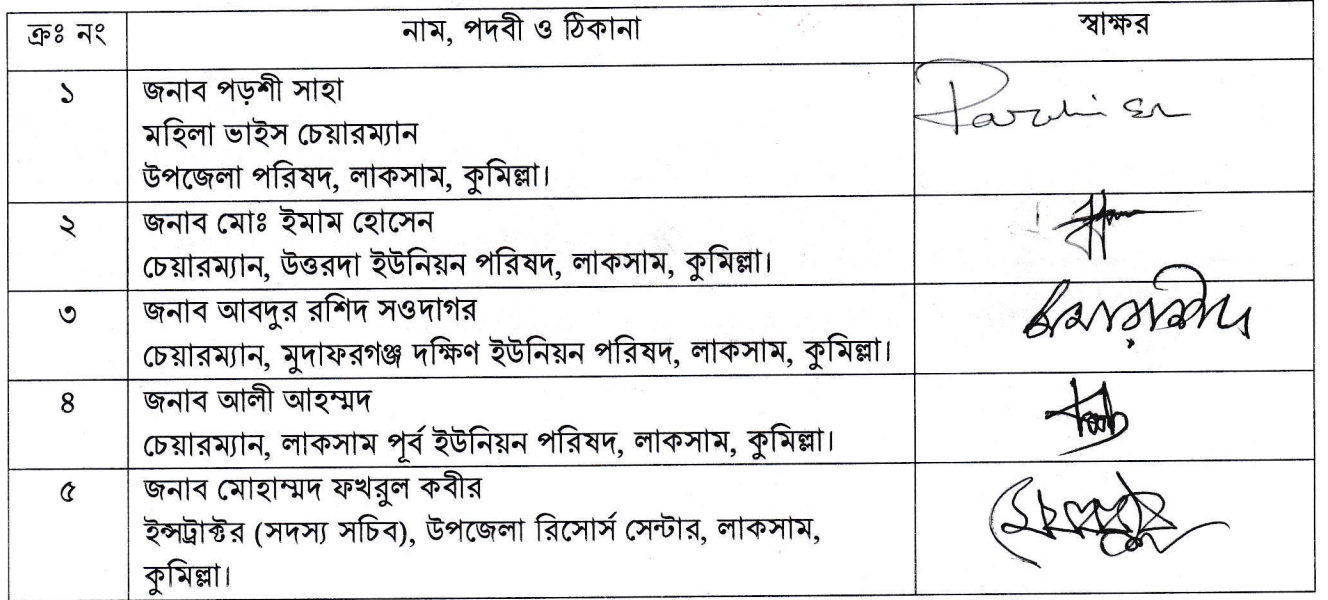 ক্রঃ নং নাম, পদবী ও ঠিকানা স্বাক্ষর
১ জনাব পড়শী সাহা
মহিলা ভাইস চেয়ারম্যান
উপজেলা পরিষদ, লাকসাম, কুমিল্লা।
২ জনাব মোঃ ইমাম হোসেন
চেয়ারম্যান, উত্তরদা ইউনিয়ন পরিষদ, লাকসাম, কুমিল্লা।
৩ জনাব আবদুর রশিদ সওদাগর
চেয়ারম্যান, মুদাফরগঞ্জ দক্ষিণ ইউনিয়ন পরিষদ, লাকসাম, কুমিল্লা।
৪ জনাব আলী আহম্মদ
চেয়ারম্যান, লাকসাম পূর্ব ইউনিয়ন পরিষদ, লাকসাম, কুমিল্লা।
৫ জনাব মোহাম্মদ ফখরুল কবীর
ইন্সট্রাক্টর (সদস্য সচিব), উপজেলা রিসোর্স সেন্টার, লাকসাম,
কুমিল্লা।